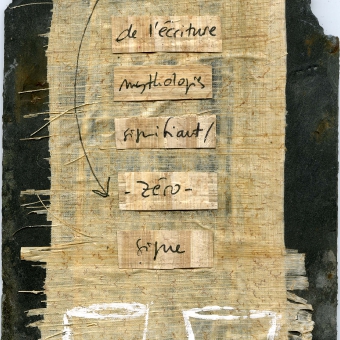 de l'écriture
mythologis
signifiant/
-zéro-
signe